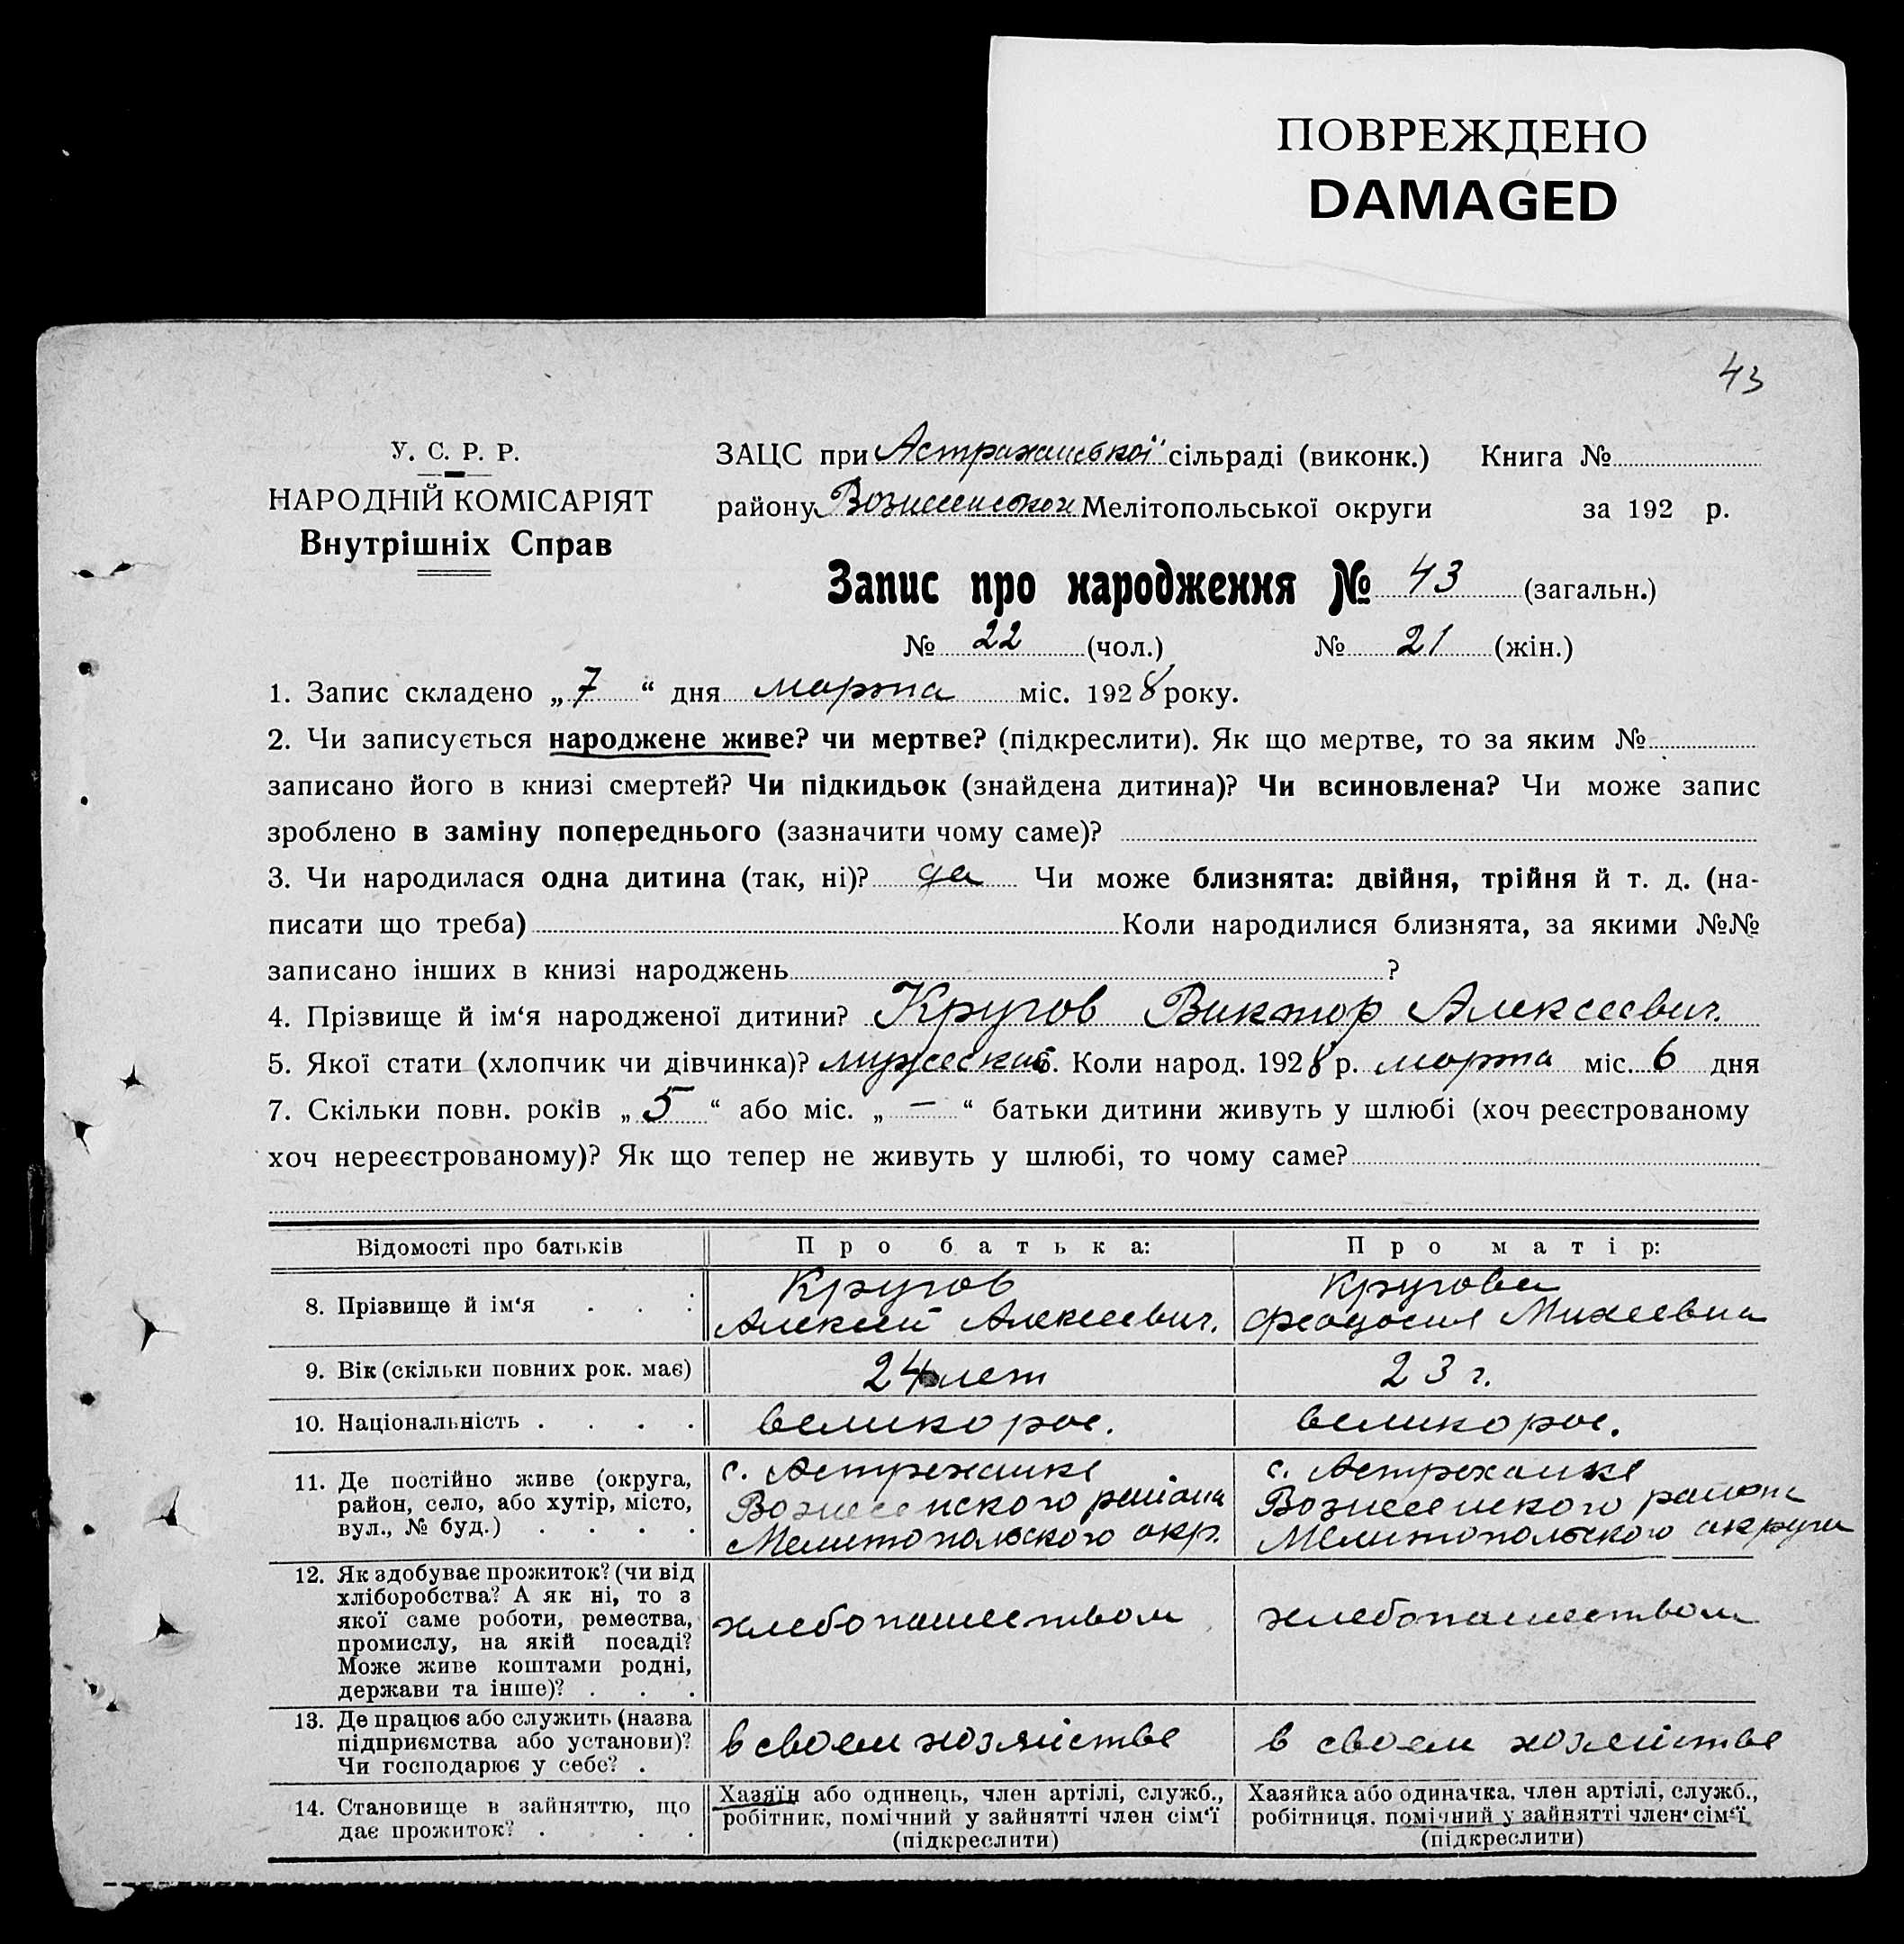 ПОВРЕЖДЕНО
DAMAGED
43
У. С. Р. Р.
НАРОДНІЙ КОМІСАРІЯТ
Внутрішніх Справ
ЗАЦС при Астраханської сільраді (виконк.) Книга №
району Мелітопольської округи за 192 р.
Запис про народження № 43 (загальн.)
№ 22 (чол.) № 21 (жін.)
1. Запис складено „ 7 “ дня марта міс. 1928 року.
2. Чи записується народжене живе? чи мертве? (підкреслити). Як що мертве, то за яким №
записано його в книзі смертей? Чи підкидьок (знайдена дитина)? Чи всиновлена? Чи може запис
зроблено в заміну попереднього (зазначити чому саме)?
3. Чи народилася одна дитина (так, ні)? да Чи може близнята: двійня, трійня й т. д. (на-
писати що треба) Коли народилися близнята, за якими №№
записано інших в книзі народжень ?
4. Прізвище й ім‘я народженої дитини? Кругов Виктор Алексеевич.
5. Якої стати (хлопчик чи дівчинка)? мужеский 6. Коли народ. 1928 р. марта міс. 6 дня
7. Скільки повн. років „ 5 “ або міс. „ — “ батьки дитини живуть у шлюбі (хоч реєстрованому
хоч нереєстрованому)? Як що тепер не живуть у шлюбі, то чому саме?
Відомості про батьків Про батька: Про матір:
8. Прізвище й ім‘я . . :
Кругов
Алексей Алексеевич.
Кругова
Феодосия Михеевна
9. Вік (скільки повних рок. має)
24 лет
23 г.
10. Національність . . . .
великорос.
великорос.
11. Де постійно живе (округа,
район, село, або хутір, місто,
вул., № буд.) . . . .
с. Астраханке
Вознесенского района
Мелитопольского окр.
с. Астраханке
Вознесенского района
Мелитопольского округа
12. Як здобуває прожиток? (чи від
хліборобства? А як ні, то з
якої саме роботи, ремества,
промислу, на якій посаді?
Може живе коштами родні,
держави та інше)? . . .
хлебопашеством
хлебопашеством
13. Де працює або служить (назва
підприємства або установи)?
Чи господарює у себе? .
в своем хозяйстве
в своем хозяйстве
14. Становище в зайняттю, що
дає прожиток? . . . .
Хазяїн або одинець, член артілі, служб.,
робітник, помічний у зайнятті член сім‘ї
(підкреслити)
Хазяйка або одиначка, член артілі, служб.,
робітниця, помічний у зайнятті член сім‘ї
(підкреслити)